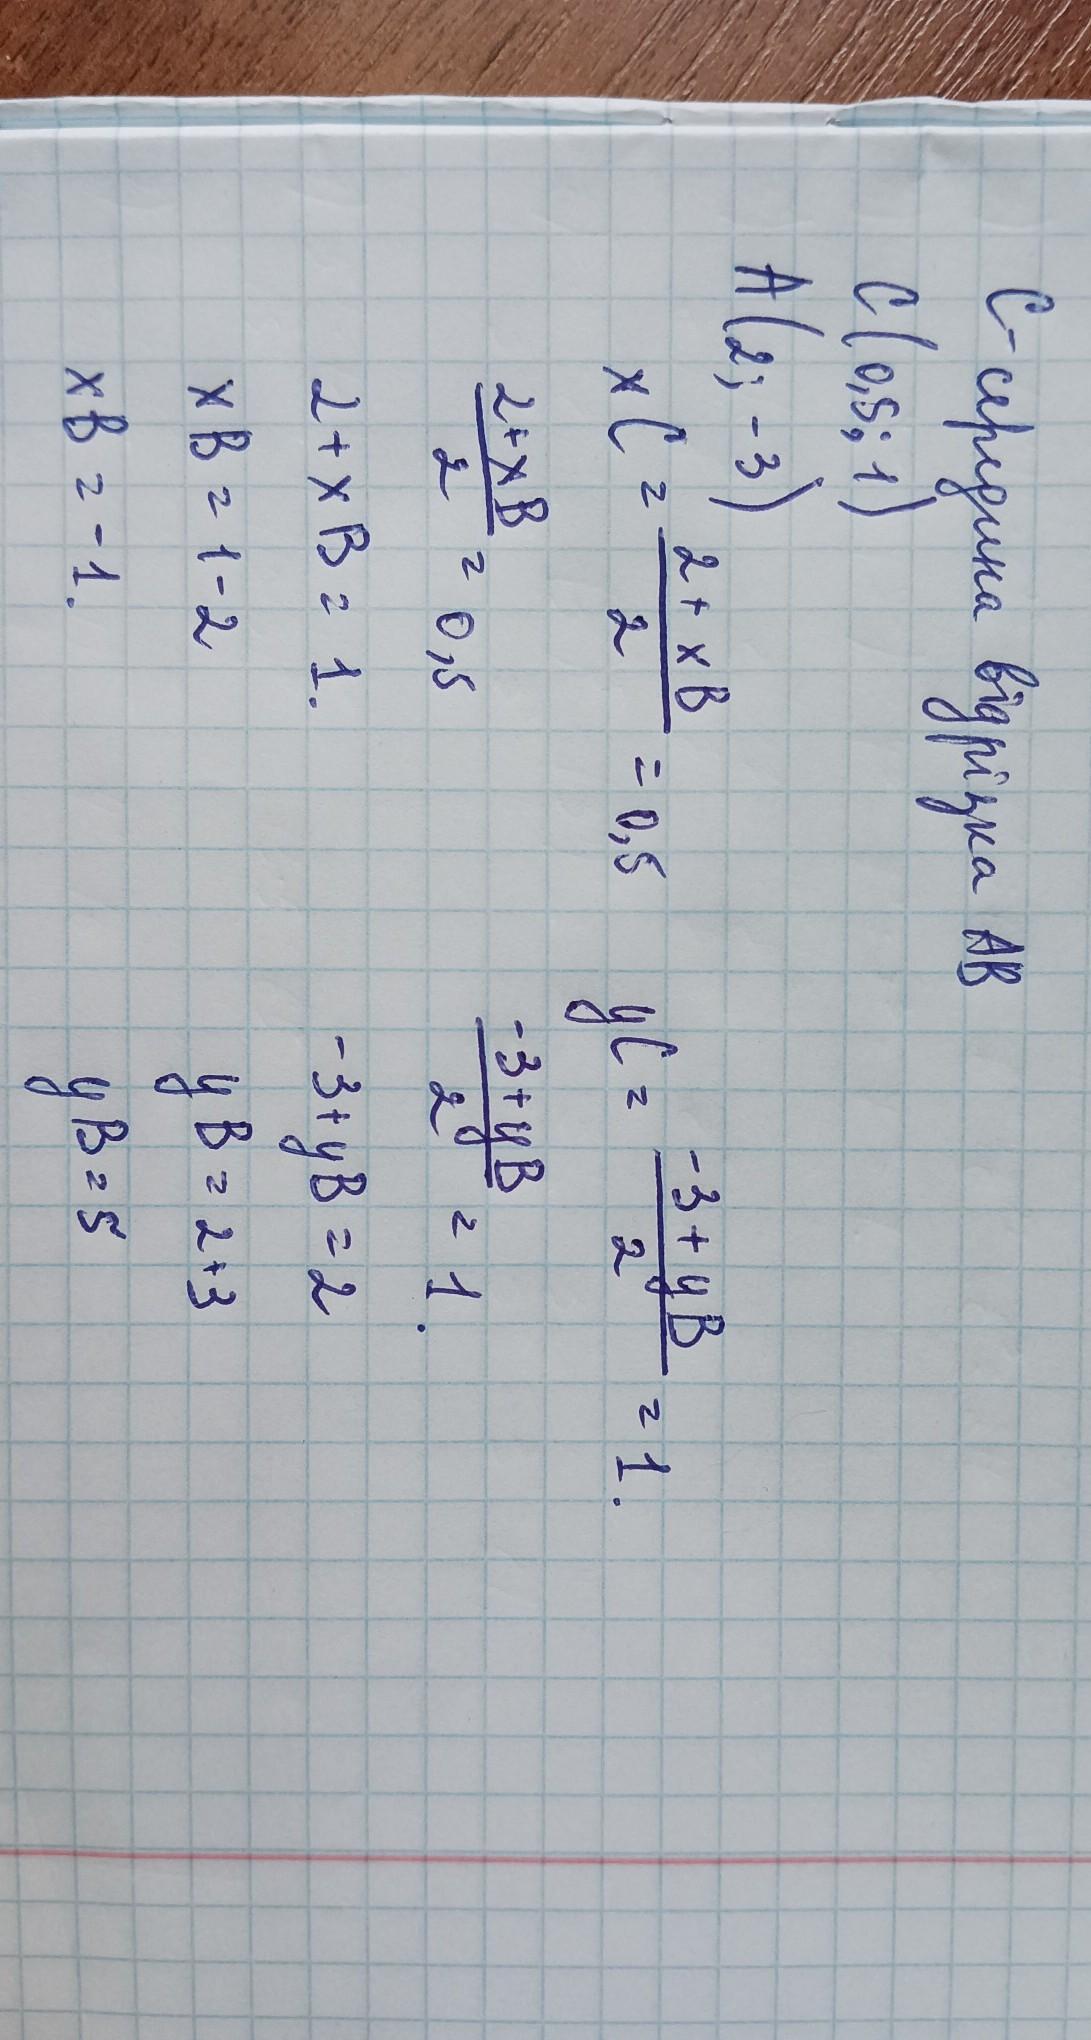 C-середина відрізка AB
C(0,5; 1)
A(2; -3)
xC = (2+xB)/2 = 0,5
yC = (-3+yB)/2 = 1.
(2+xB)/2 = 0,5
(-3+yB)/2 = 1.
2+xB = 1.
-3+yB = 2
xB = 1-2
yB = 2+3
xB = -1.
yB = 5